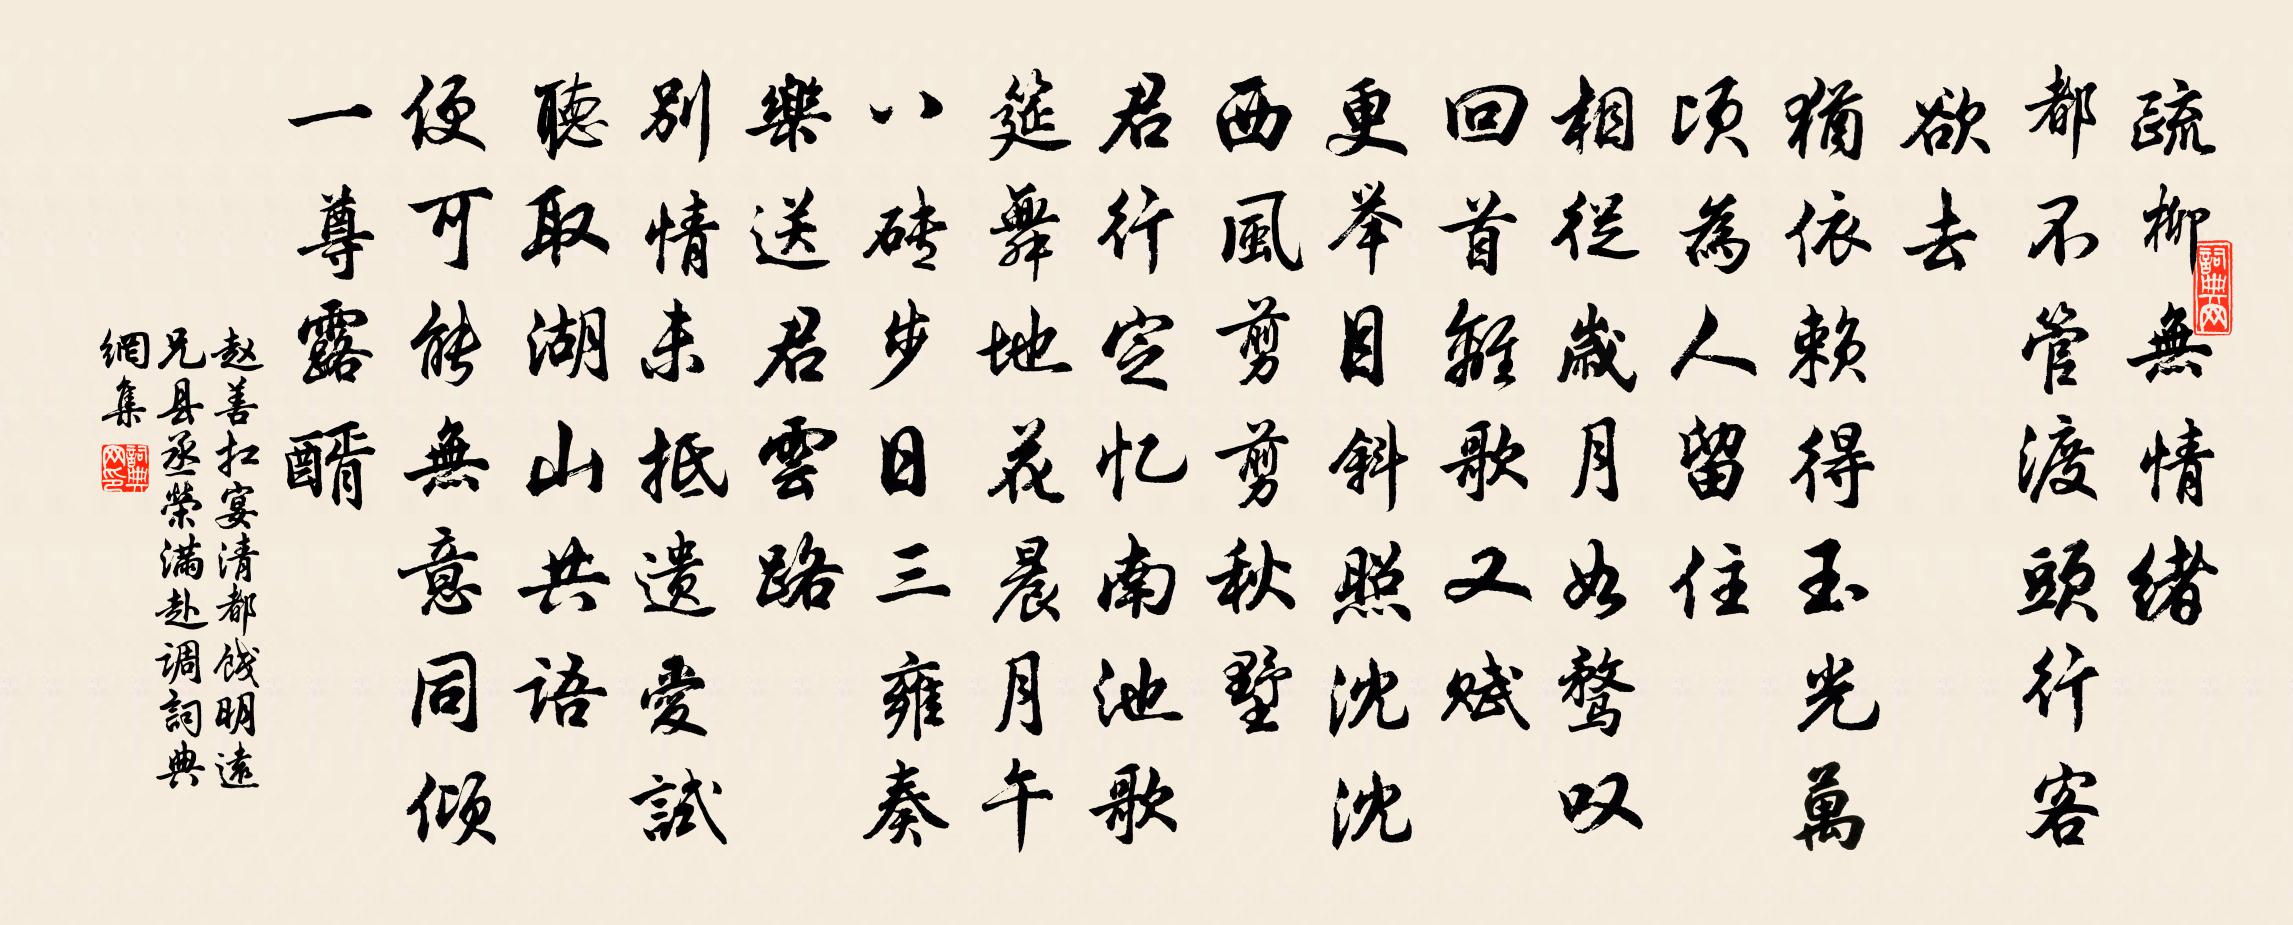 疏柳無情緒
都不管渡頭行客
欲去
猶依賴得玉光萬
頃為人留住
相從歲月如鶩叹
回首離歌又賦
更举目斜照沈沈
西風剪剪秋墅
君行定忆南池歌
筵舞地花晨月午
八磚步日三雍奏
樂送君雲路
別情未抵遺愛試
聽取湖山共語
便可能無意同傾
一尊露醑
赵善扛宴清都餞明遠
兄县丞榮满赴调詞典
網集
詞典网
詞典网印